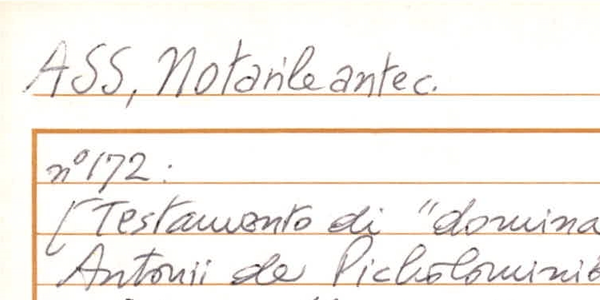 ASS, Notarile antec.
n° 172:
[Testamento di "domina
Antonii de Picholominib